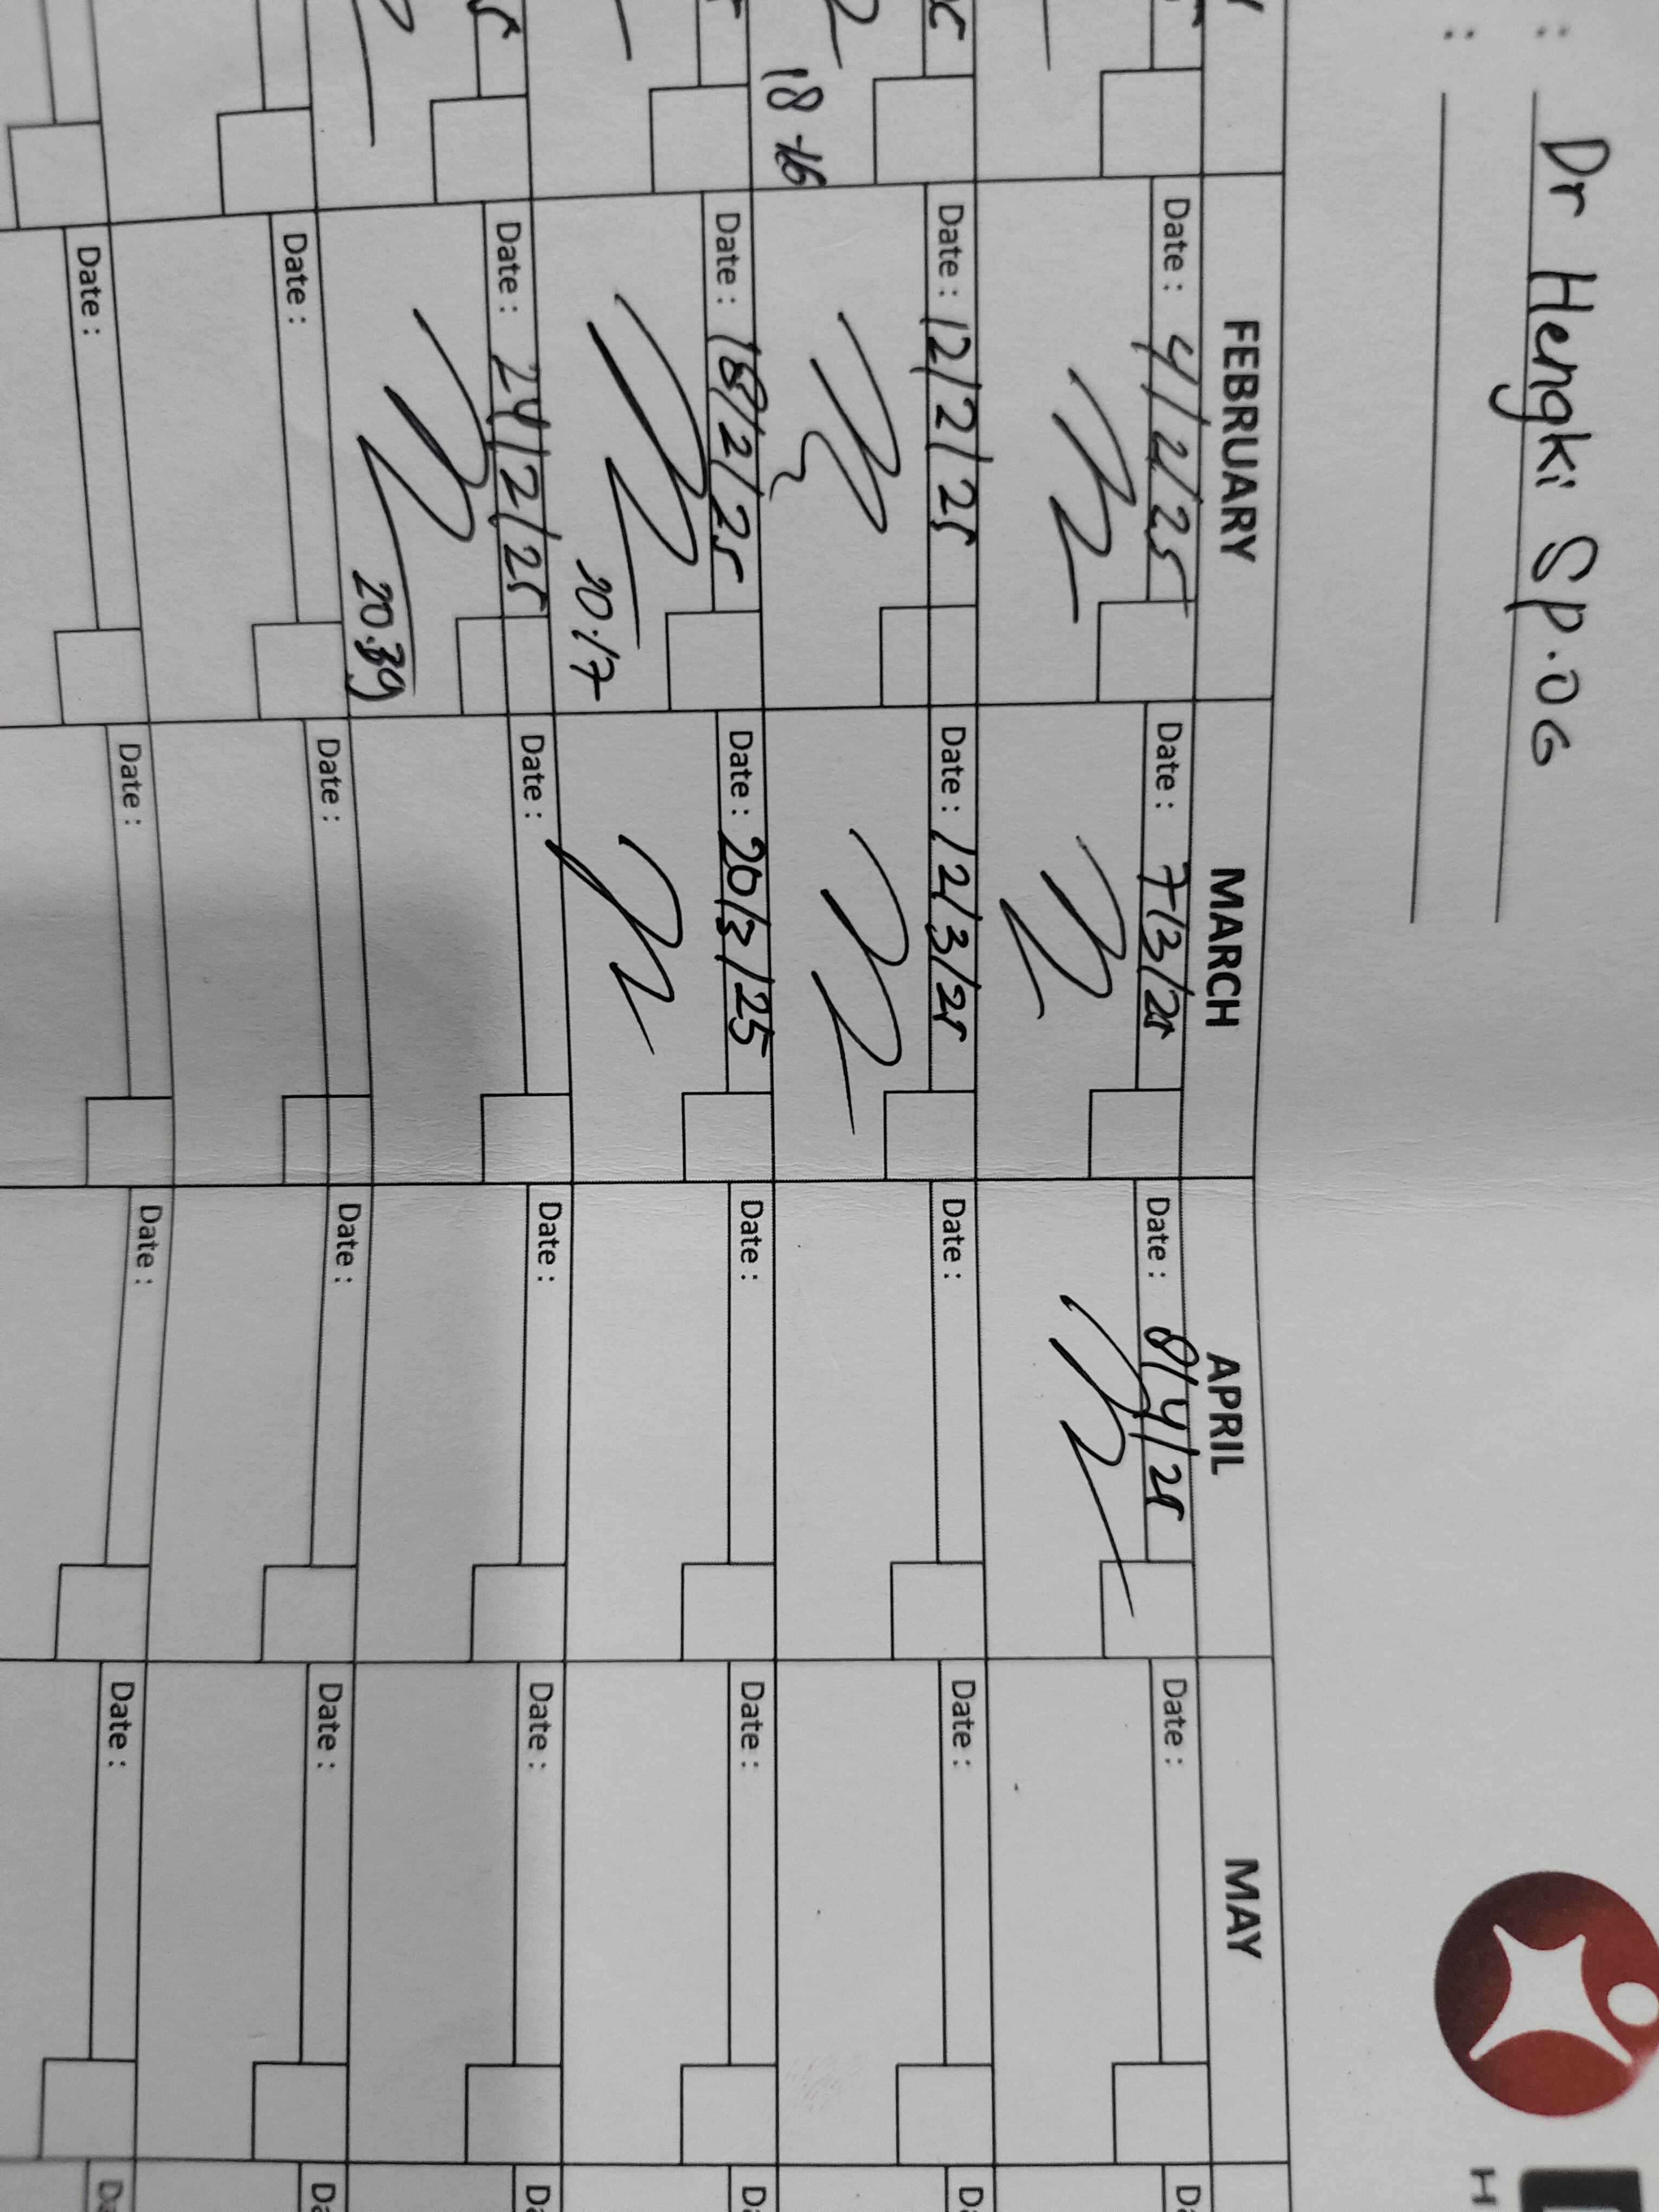 : Dr Hengki Sp.OG
:
H
FEBRUARY MARCH APRIL MAY
Date : 4/2/25 Date : 7/3/25 Date : 8/4/25 Date :
Date : 12/2/25 Date : 12/3/25 Date : Date :
18.16
Date : 18/2/25 Date : 20/3/25 Date : Date :
20.17
Date : 24/2/25 Date : Date : Date :
20.39
Date : Date : Date : Date :
Date : Date : Date : Date :